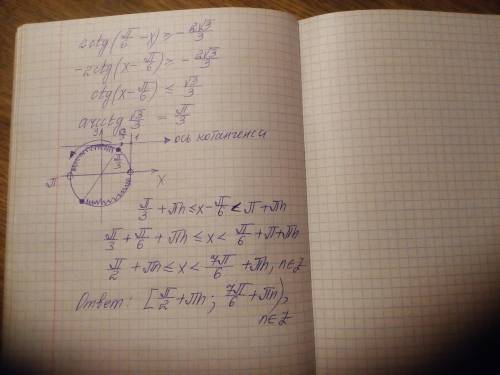 2ctg(π/6 - x) ≥ - 2√3/3
-2ctg(x - π/6) ≥ - 2√3/3
ctg(x - π/6) ≤ √3/3
arcctg √3/3 = π/3
ось котангенси
π/3
π
x
π/3 + πn ≤ x - π/6 < π + πn
π/3 + π/6 + πn ≤ x < π/6 + π + πn
π/2 + πn ≤ x < 7π/6 + πn, n∈Z
Ответ: [π/2 + πn; 7π/6 + πn),
n∈Z